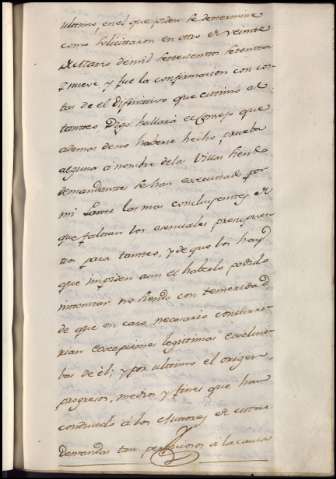 ultimo, en el que pidio se determine
como solicitaron en otro de veinte
de Marzo de mil settecientos settenta
y nueve y fue la confirmacion con cos
tas de el difinitivo que estimó el
tanteo. Digo hallará el Consejo que
ademas de no haberse hecho prueba
alguna a nombre de las Villas
demandantes se han executado por
mi Parte las mas concluyentes de
que faltaron los esenciales presupues
tos para tanteo, y de que los hay
que impiden aun el haberlo podido
intentar no siendo con temeridad
de que en caso necesario
excepciones legitimas
de él; y por ultimo el origen,
progreso, medios, y fines que han
conducido á los de estas
demandas tan perjudiciales a la causa